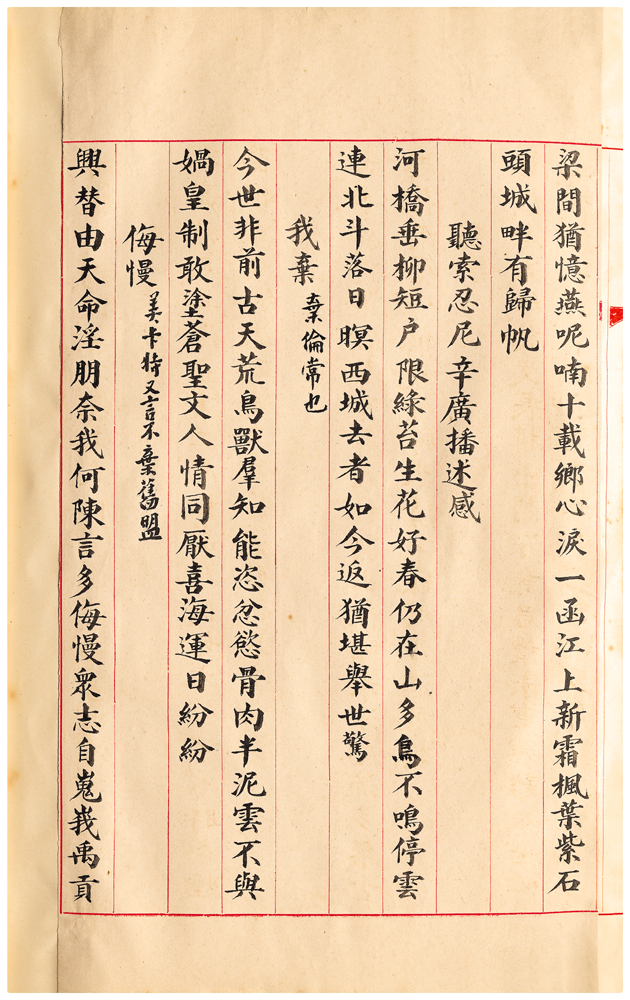 梁間猶憶燕呢喃十載鄉心淚一函江上新霜楓葉紫石
頭城畔有歸帆
聽索忍尼辛廣播述感
河橋垂柳短戶限綠苔生花好春仍在山多鳥不鳴停雲
連北斗落日暝西城去者如今返猶堪舉世驚
我棄棄倫常也
今世非前古天荒鳥獸羣知能恣忿慾骨肉半泥雲不與
媧皇制敢塗蒼聖文人情同厭喜海運日紛紛
侮慢美卡特又言不棄舊盟
興替由天命淫朋奈我何陳言多侮慢衆志自嵬峩禹貢